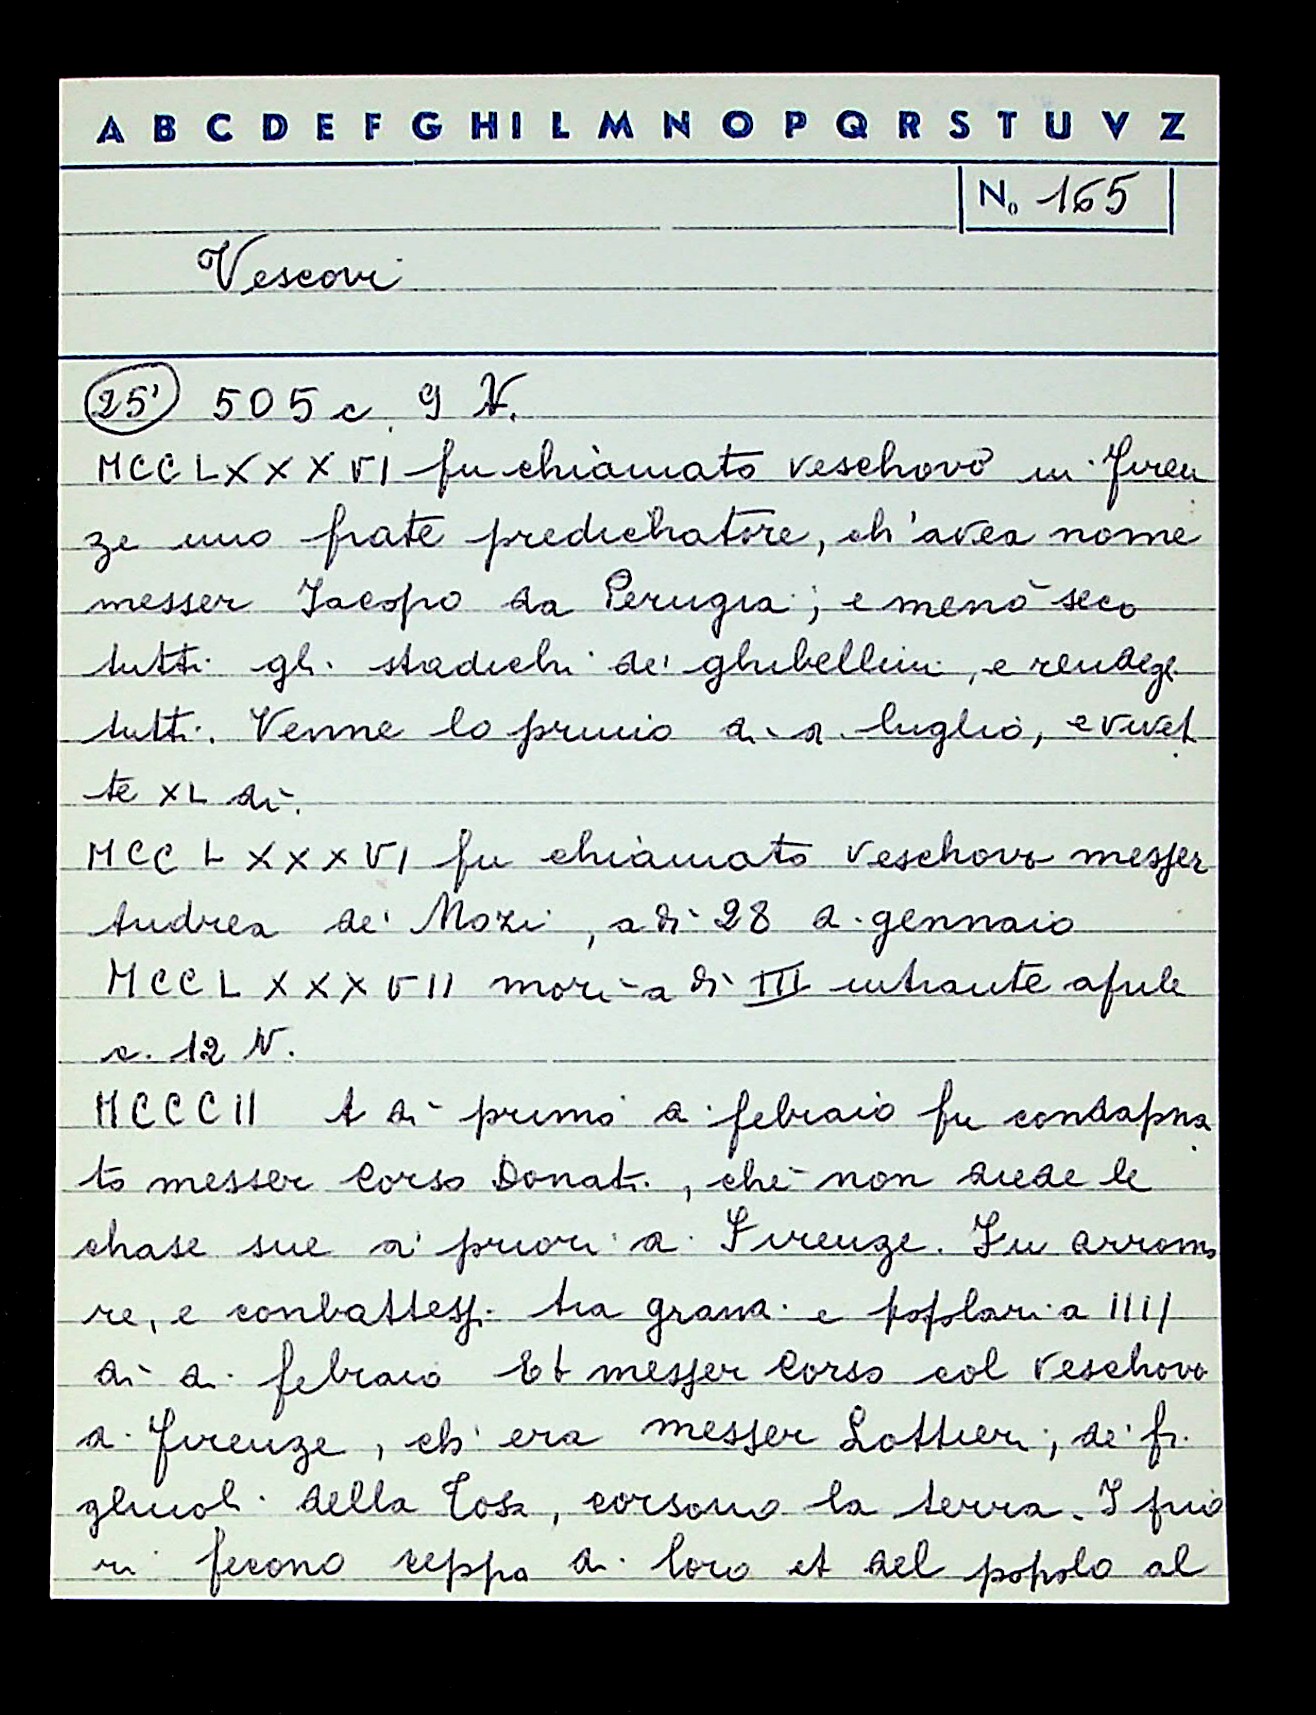 A B C D E F G H I L M N O P Q R S T U V Z
No 165
Vescovi
25' 505 c. 9 V.
MCCLXXXVI fu chiamato veschovo in Firen
ze uno frate predichatore, ch'avea nome
messer Iacopo da Perugia; e menò seco
tutti gli stadichi de' ghibellini, e rendegli
tutti. Venne lo primo dì di luglio, e vivet
te XL dì.
MCCLXXXVI fu chiamato veschovo messer
Andrea de' Mozi, a dì 28 di gennaio
MCCLXXXVII morì a dì III intrante aprile
c. 12 V.
MCCCII A dì primo di febraio fu condapna
to messer Corso Donati, chè non diede le
chase sue a' priori di Firenze. Fu arromo
re, e conbattessi tra grandi e popolari a IIII
dì di febraio Et messer Corso col veschovo
di Firenze, ch'era messer Lottieri, de' fi
gliuoli della Tosa, corsono la terra. I prio
ri feciono ceppo di loro et del popolo al